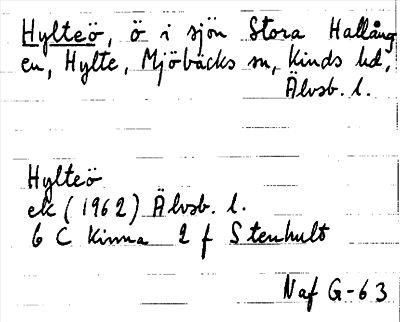 Hylteö, ö i sjön Stora Hallång
en, Hylte, Mjöbäcks sn, Kinds hd,
Älvsb. l.
Hylteö
ek (1962) Älvsb. l.
6 C Kinna 2 f Stenhult
Naf G-63